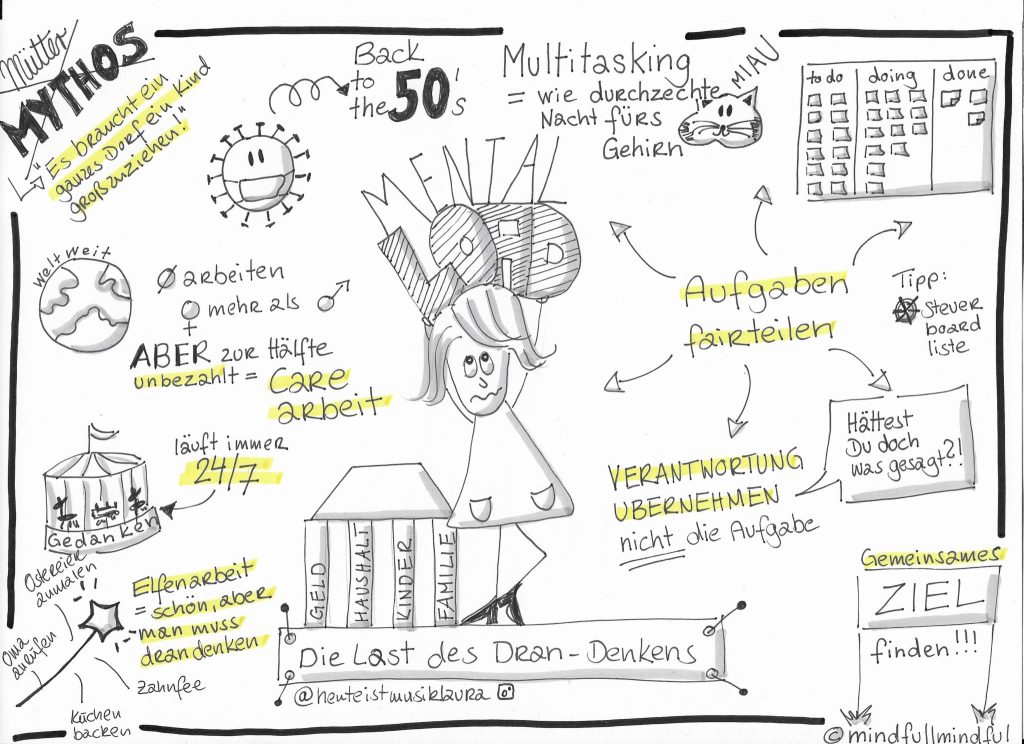 Mütter
MYTHOS
"Es braucht ein
ganzes Dorf ein Kind
großzuziehen!"
Back
to
the 50's
Multitasking
= wie durchzechte
Nacht fürs
Gehirn
MIAU
to do doing done
MENTAL
LOAD
weltweit
Ø arbeiten
♀ mehr als ♂
ABER zur Hälfte
unbezahlt = Care
arbeit
Aufgaben
fairteilen
Tipp:
Steuer
board
liste
läuft immer
24/7
Gedanken
Hättest
Du doch
was gesagt?!
VERANTWORTUNG
ÜBERNEHMEN
nicht die Aufgabe
GELD
HAUSHALT
KINDER
FAMILIE
Ostereier
anmalen
Oma
anrufen
Elfenarbeit
= schön, aber
man muss
dran denken
Zahnfee
Kuchen
backen
Die Last des Dran-Denkens
@heuteistmusiklaura
Gemeinsames
ZIEL
finden!!!
© mindfullmindful